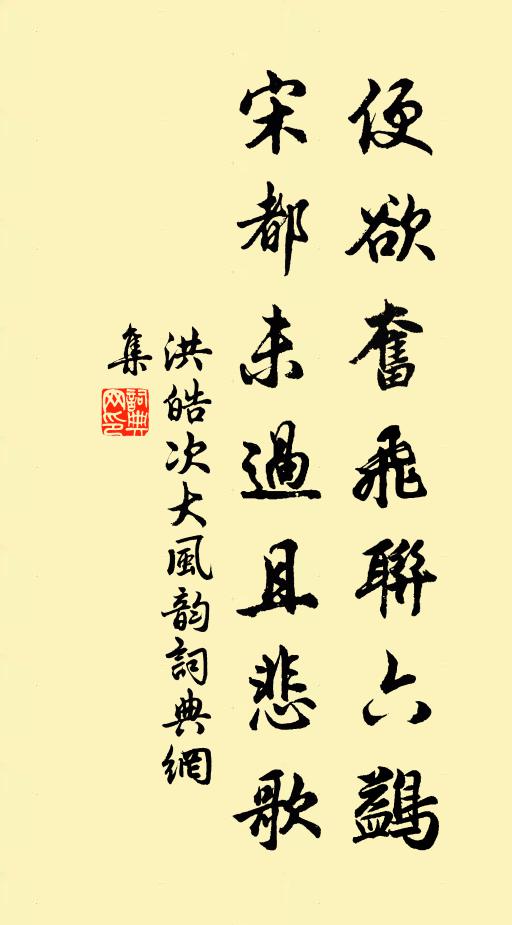 便欲奮飛聯六鷁
宋都未過且悲歌
洪皓次大風韵詞典網
集
詞典
网印